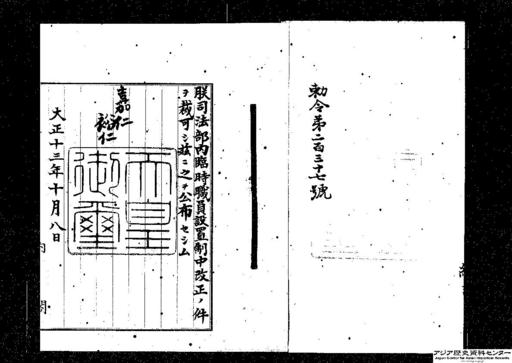 勅令第二百三十七號
朕司法部內臨時職員設置制中改正ノ件
ヲ裁可シ茲ニ之ヲ公布セシム
嘉仁
裕仁
天皇
御璽
大正十三年十月八日
內閣
アジア歴史資料センター
Japan Center for Asian Historical Records